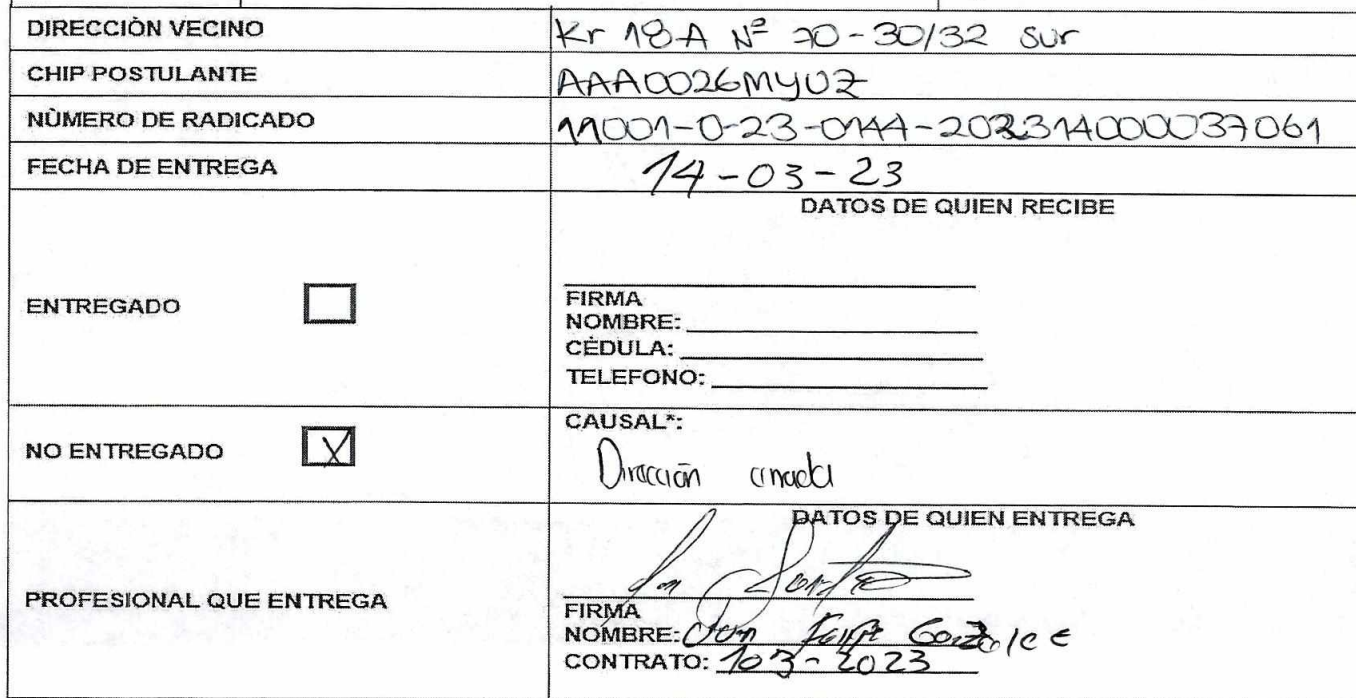 DIRECCIÒN VECINO
Kr 18A Nº 70-30/32 sur
CHIP POSTULANTE
AAA0026MYUZ
NÙMERO DE RADICADO
11001-0-23-0144-20231400037061
FECHA DE ENTREGA
14-03-23
DATOS DE QUIEN RECIBE
ENTREGADO
FIRMA
NOMBRE:
CÈDULA:
TELEFONO:
NO ENTREGADO X
CAUSAL*:
Dirección
DATOS DE QUIEN ENTREGA
PROFESIONAL QUE ENTREGA
FIRMA
NOMBRE: Felipe González
CONTRATO: 103-2023